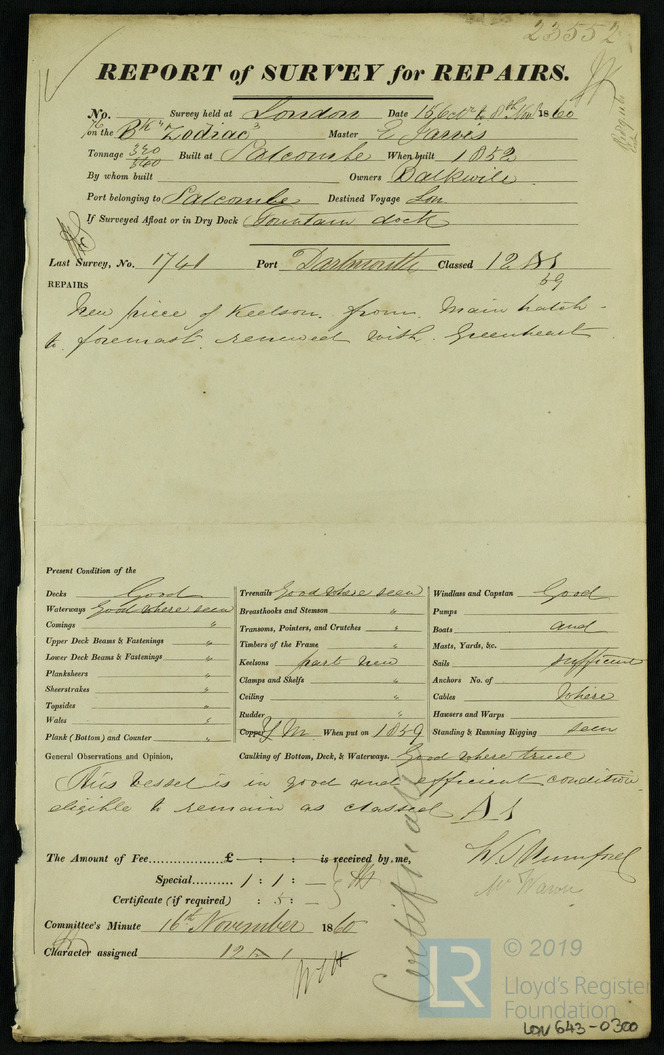 23552
REPORT of SURVEY for REPAIRS.
No. Survey held at London Date 15 Octr to 8th Novr 1860
on the Bk "Zodiac" Master E Jarvis
Tonnage 320 Built at Salcombe When built 1852
By whom built Owners Balkwill
Port belonging to Salcombe Destined Voyage Lon
If Surveyed Afloat or in Dry Dock Fountain dock
Last Survey, No. 1741 Port Dartmouth Classed 12 A 1
59
REPAIRS
New piece of Keelson from Main hatch
to foremast renewed with Greenheart
Present Condition of the
Decks Good
Waterways Good where seen
Comings "
Upper Deck Beams & Fastenings "
Lower Deck Beams & Fastenings "
Planksheers "
Sheerstrakes "
Topsides "
Wales "
Plank (Bottom) and Counter "
Treenails Good where seen
Breasthooks and Stemson "
Transoms, Pointers, and Crutches "
Timbers of the Frame "
Keelsons part new
Clamps and Shelfs "
Ceiling "
Rudder "
Copper Y M When put on 1859
Windlass and Capstan Good
Pumps
Boats and
Masts, Yards, &c.
Sails sufficient
Anchors No. of
Cables where
Hawsers and Warps
Standing & Running Rigging seen
General Observations and Opinion, Caulking of Bottom, Deck, & Waterways. Good where tried
This Vessel is in good and efficient condition
eligible to remain as classed A 1
The Amount of Fee £ - : - : is received by me,
Special 1 : 1 : -
Certificate (if required) : 5 : -
Committee's Minute 16th November 1860
Character assigned 12 A 1
Certificate
LR © 2019
Lloyd's Register
Foundation
LDN 643-0300